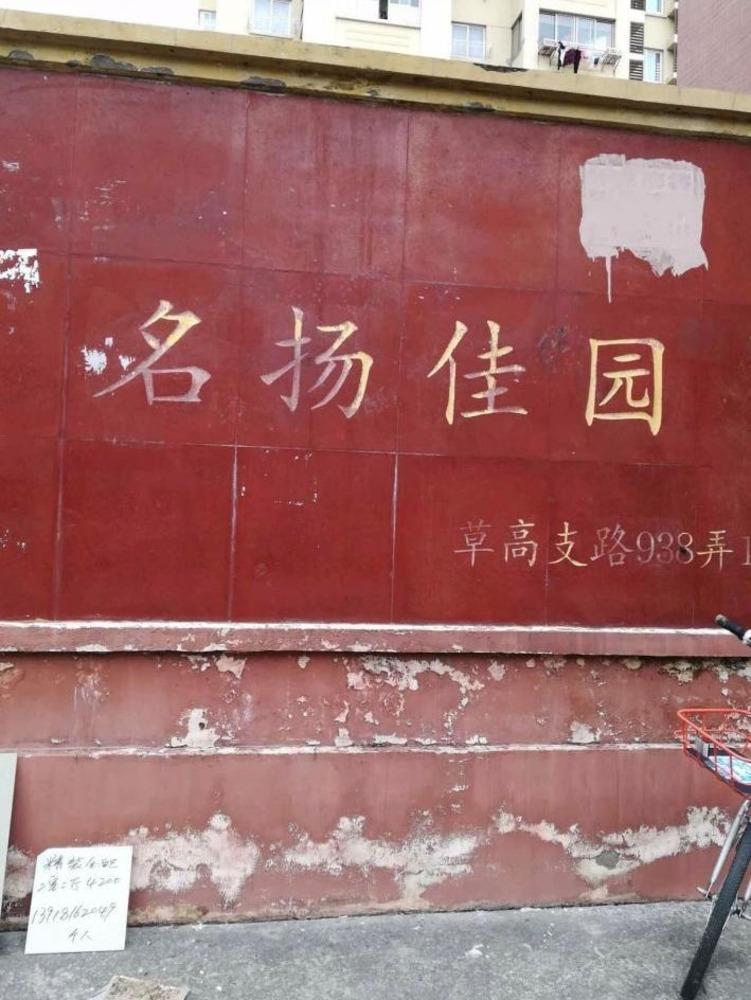 名扬佳园
草高支路938弄1
精装全配
2室2厅4200
13918162049
个人